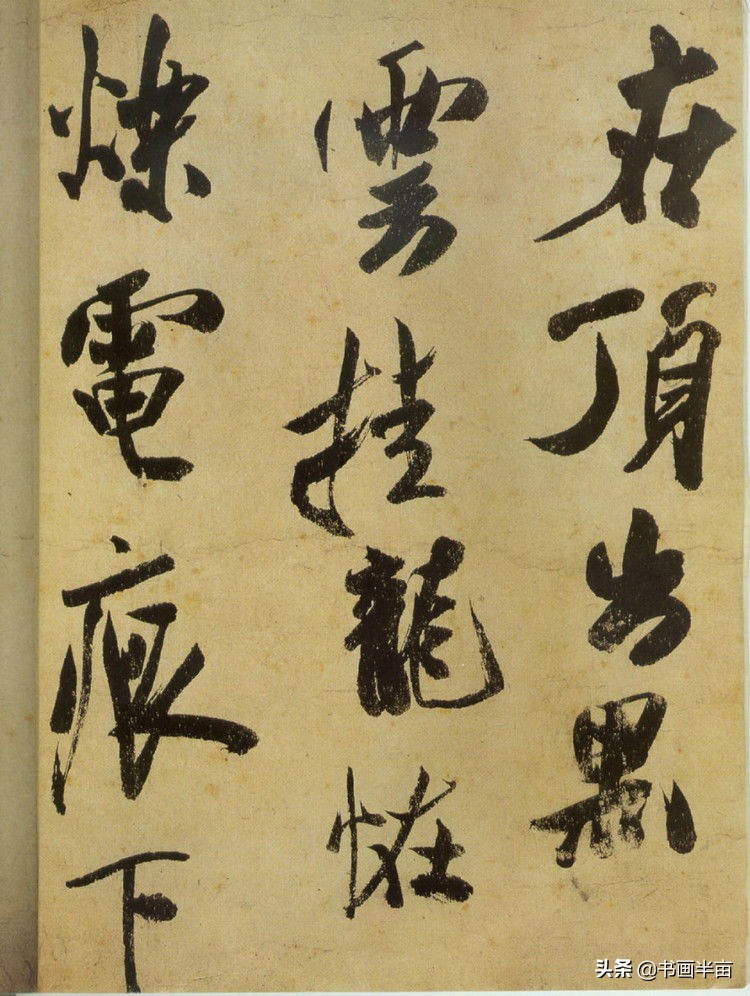 在頂出黑
雲挂龍恠
爍電痕下
头条 @书画半亩